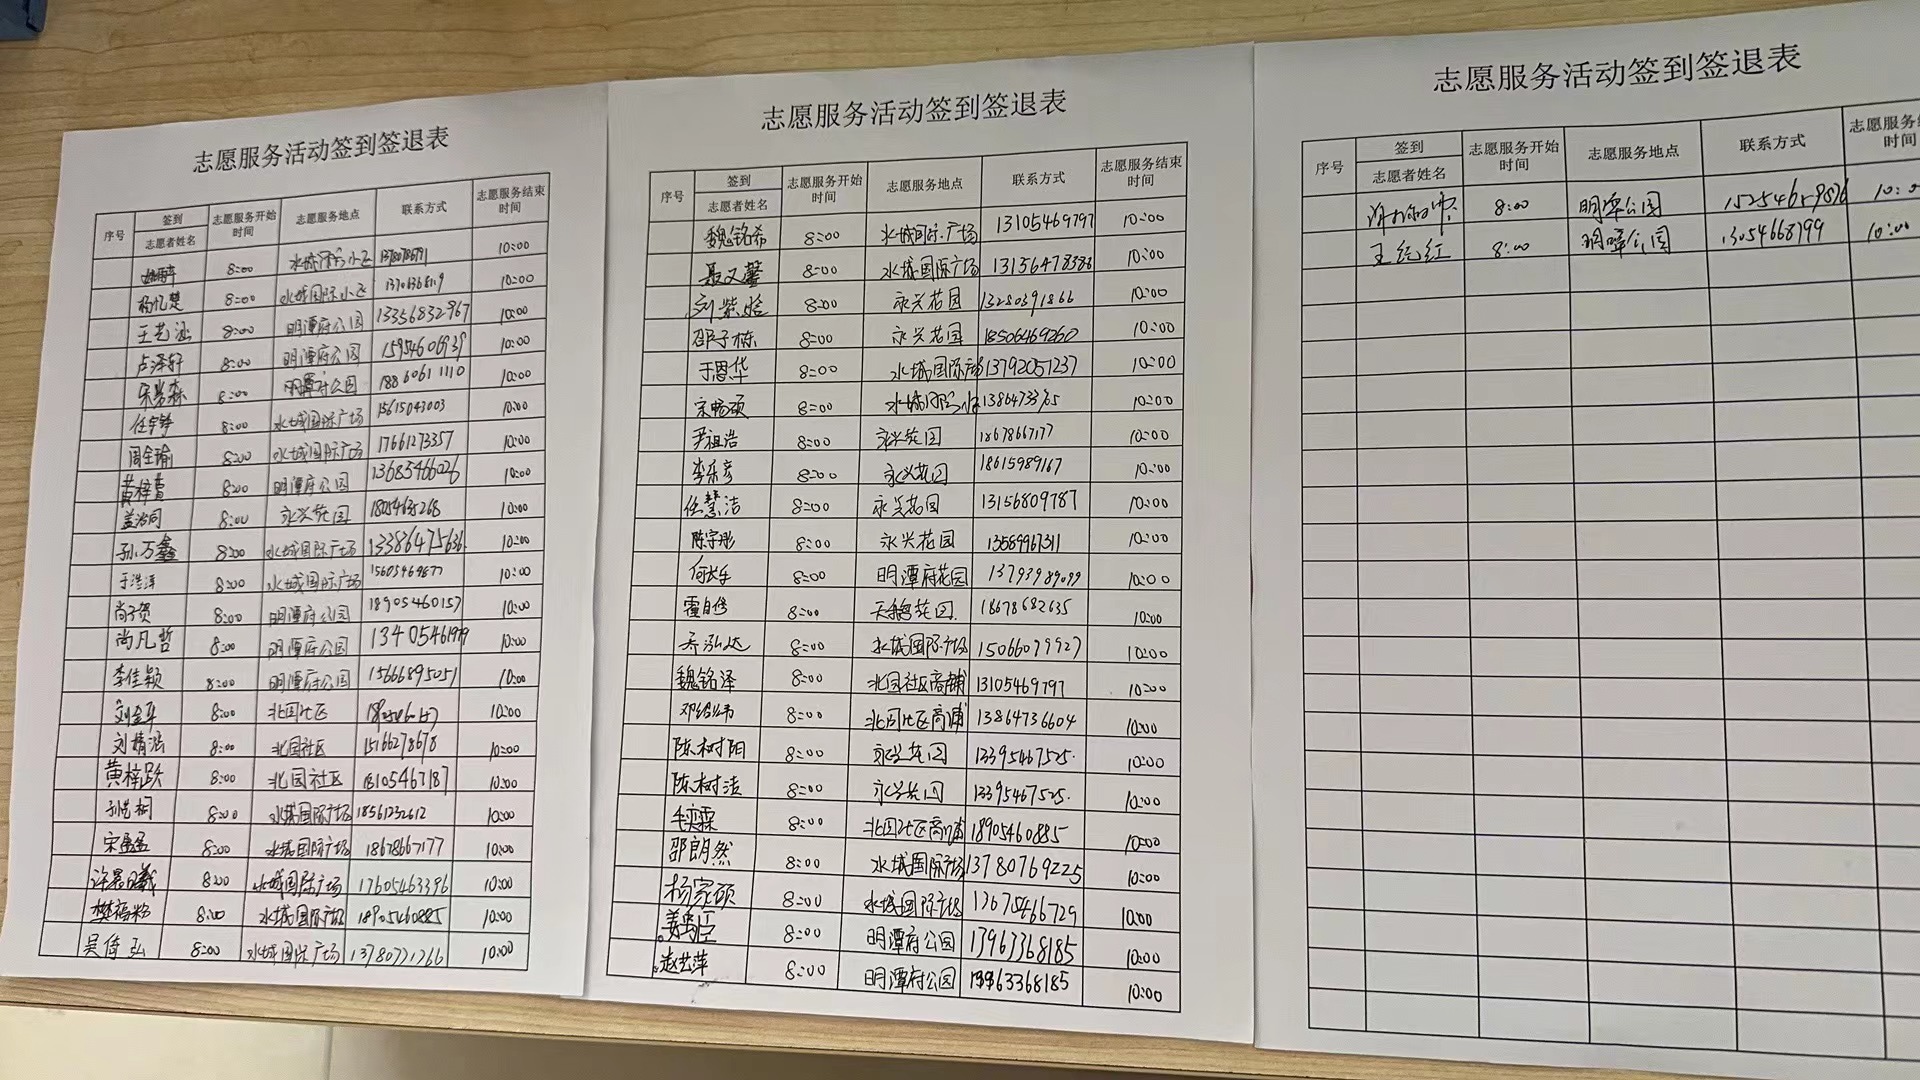 志愿服务活动签到签退表
序号 签到 志愿者姓名 志愿服务开始时间 志愿服务地点 联系方式 志愿服务结束时间
8:00 10:00
杨忆楚 8:00 水城国际小区 10:00
王艺涵 8:00 明潭府公园 13356832967 10:00
卢泽轩 8:00 明潭府公园 15954606939 10:00
8:00 明潭府公园 18860611110 10:00
任宇铮 8:00 水城国际广场 15615043003 10:00
周全瑜 8:00 水城国际广场 17661273357 10:00
黄梓萱 8:00 明潭府公园 13685466026 10:00
盖浩同 8:00 永兴花园 18054635268 10:00
孙万鑫 8:00 水城国际广场 13386475636 10:00
于浩洋 8:00 水城国际广场 10:00
尚子贺 8:00 明潭府公园 18905460157 10:00
尚凡哲 8:00 明潭府公园 13405461979 10:00
李佳颖 8:00 明潭府公园 15666895051 10:00
8:00 北园社区 10:00
刘婧涵 8:00 北园社区 15166278678 10:00
黄梓跃 8:00 北园社区 18105467187 10:00
8:00 水城国际广场 18561232612 10:00
8:00 水城国际广场 18678667177 10:00
8:00 水城国际广场 17605463396 10:00
8:00 水城国际广场 18905460885 10:00
吴倚弘 8:00 水城国际广场 13780771266 10:00
志愿服务活动签到签退表
序号 签到 志愿者姓名 志愿服务开始时间 志愿服务地点 联系方式 志愿服务结束时间
魏铭希 8:00 水城国际广场 13105469797 10:00
聂义馨 8:00 水城国际广场 13156478388 10:00
刘紫晗 8:00 永兴花园 13280391866 10:00
邵子栋 8:00 永兴花园 18506469260 10:00
于恩华 8:00 水城国际 13792051237 10:00
宋畅硕 8:00 10:00
尹祖浩 8:00 永兴花园 18678667177 10:00
李乐彦 8:00 永兴花园 18615989167 10:00
任慧洁 8:00 永兴花园 13156809787 10:00
陈宇彤 8:00 永兴花园 13589967311 10:00
何长乐 8:00 明潭府花园 13793989099 10:00
霍自修 8:00 18678682635 10:00
8:00 水城国际广场 15066079927 10:00
魏铭泽 8:00 北园社区商铺 13105469797 10:00
8:00 北园社区商铺 13864736604 10:00
陈树阳 8:00 永兴花园 13395467525. 10:00
陈树洁 8:00 永兴花园 13395467525. 10:00
毛奕霖 8:00 北园社区商铺 18905460885 10:00
邵朗然 8:00 水城国际广场 13780769225 10:00
杨家硕 8:00 水城国际广场 10:00
8:00 明潭府公园 13963368185 10:00
赵艺萍 8:00 明潭府公园 10:00
志愿服务活动签到签退表
序号 签到 志愿者姓名 志愿服务开始时间 志愿服务地点 联系方式
8:00 明潭公园
王纪红 8:00 明潭公园 13054668799 10:00